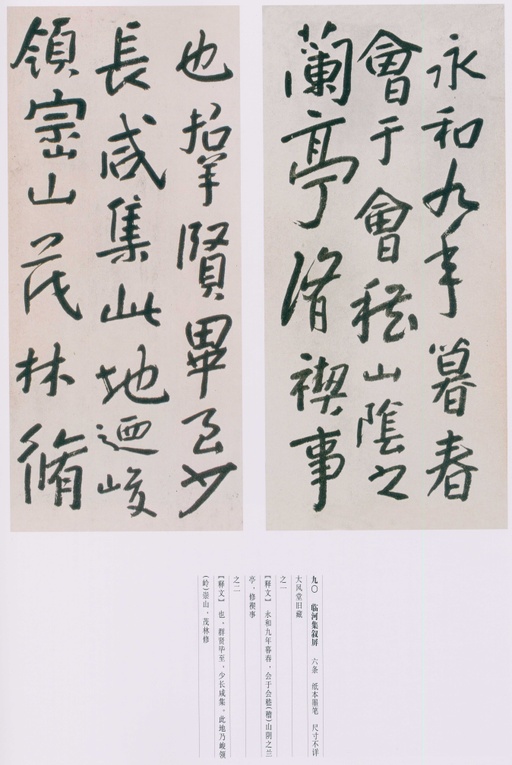 永和九年暮春
會于會嵇山陰之
蘭亭脩禊事
也羣賢畢至少
長咸集此地迺峻
領崈山茂林脩
九〇 临河集叙屏 六条 纸本墨笔 尺寸不详
大风堂旧藏
之一
【释文】 永和九年暮春，会于会嵇(稽)山阴之兰
亭，修禊事
之二
【释文】 也，群贤毕至，少长咸集，此地乃峻领
(岭)崇山，茂林修